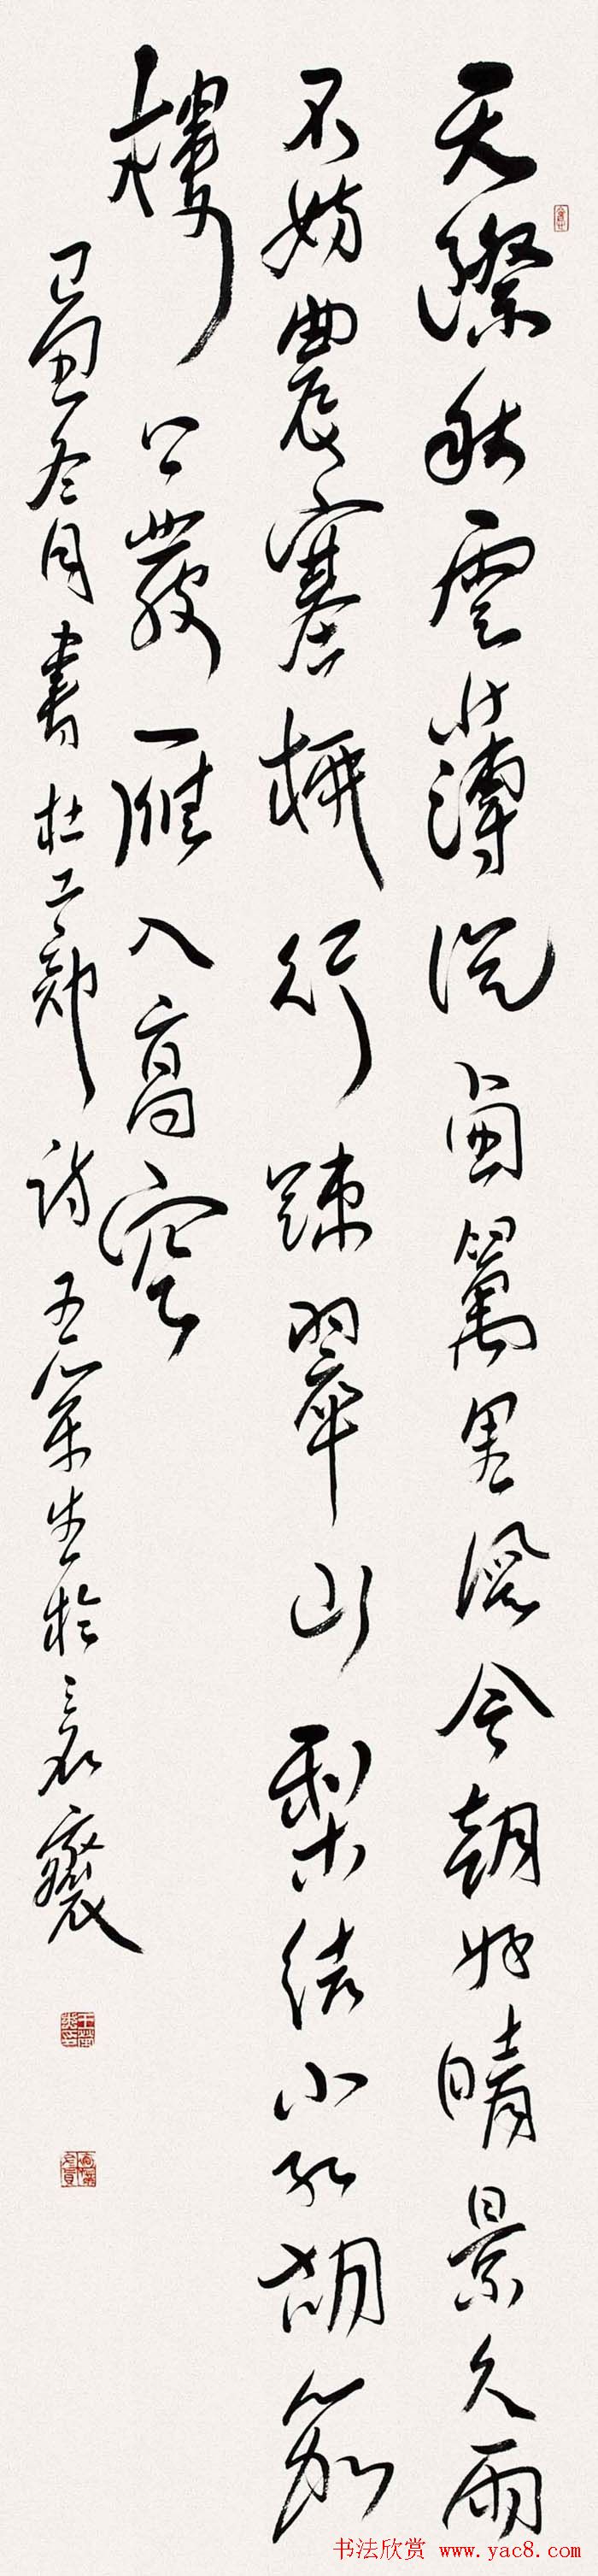 天際秋雲薄從西萬里風今朝好晴景久雨
不妨農塞柳行疎翠山梨結小紅胡笳
樓上發一雁入高空
己丑冬月書杜工部詩 生於
书法欣赏 www.yac8.com